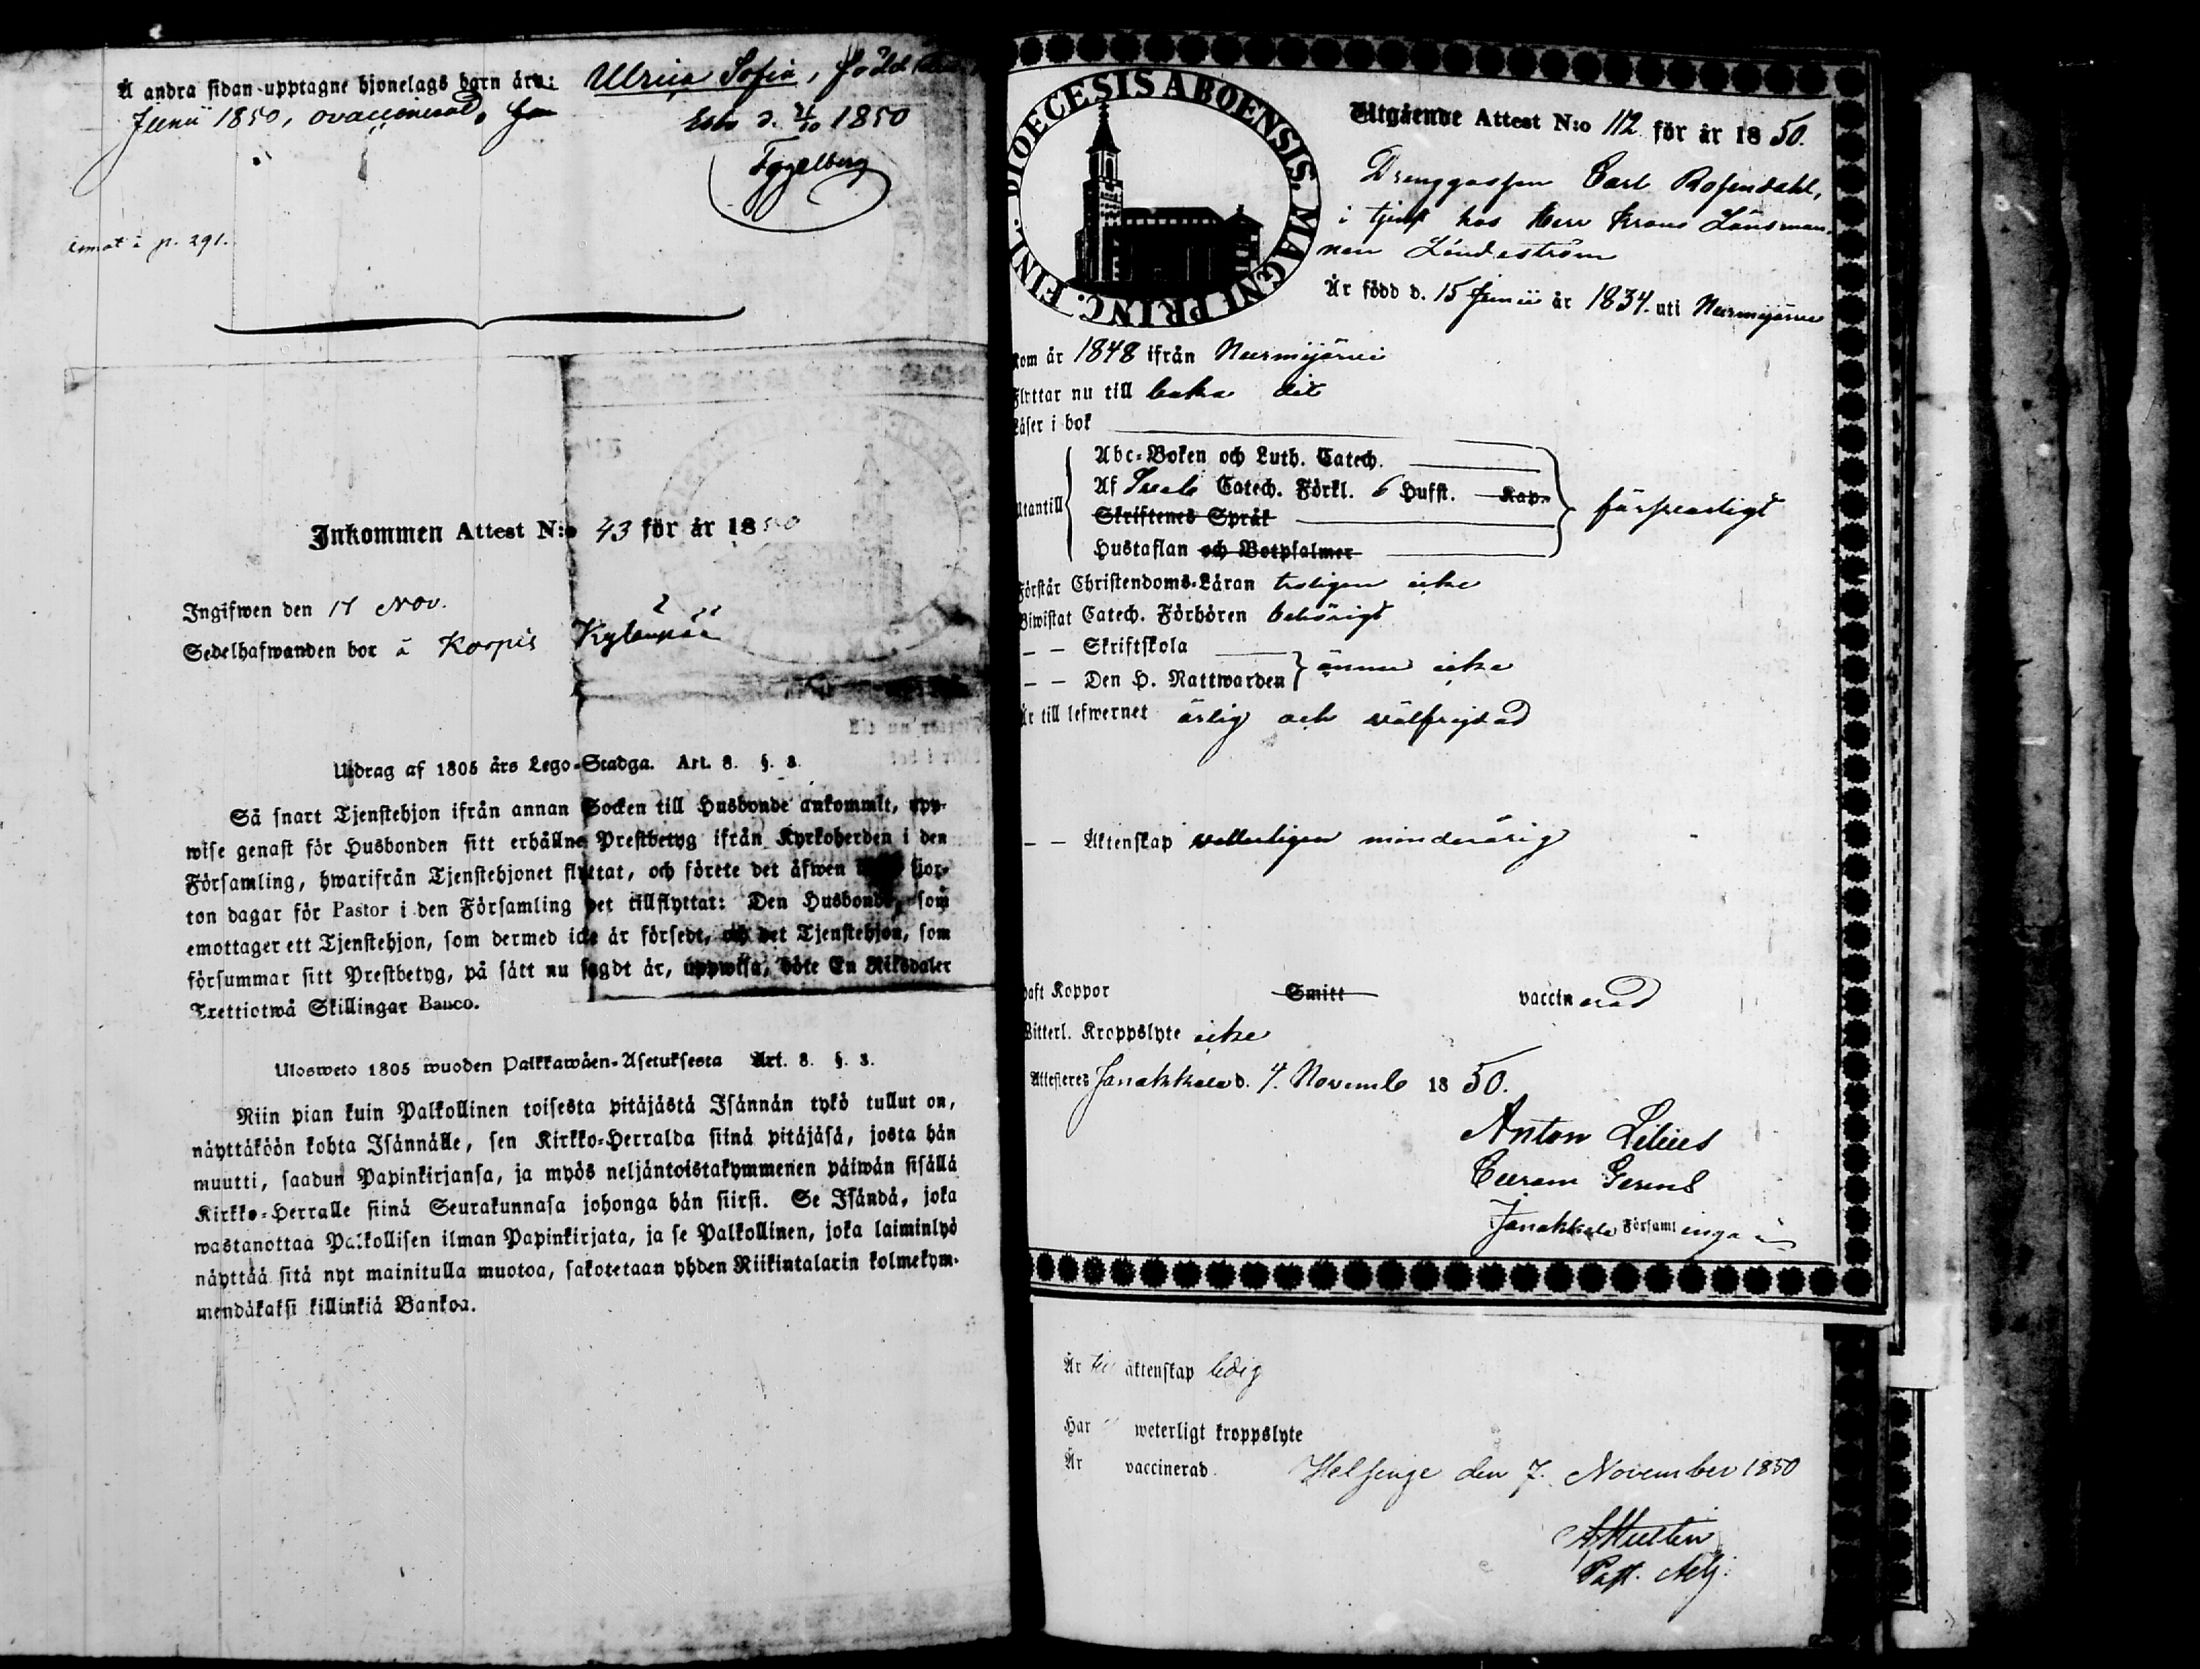 Å andra sidan upptagne hjonelags barn äro: Ulrica Sofia, född
Junii 1850, ovaccinerad.
Esbo d. 4/10 1850
Fogelberg
p. 291.
Inkommen Attest N:o 43 för år 1850
Ingifwen den 17 Nov.
Sedelhafwanden bor å Korpis Kylänpää
Utdrag af 1805 års Lego-Stadga. Art. 8. §. 3.
Så snart Tjenstehjon ifrån annan Socken till Husbonde ankommit, upp-
wise genast för Husbonden sitt erhållne Prestbetyg ifrån Kyrkoherden i den
Församling, hwarifrån Tjenstehjonet flyttat, och förete det äfwen fjor-
ton dagar för Pastor i den Församling det tillflyttat: Den Husbonde, som
emottager ett Tjenstehjon, som dermed icke är försedt, och det Tjenstehjon, som
försummar sitt Prestbetyg, på sätt nu sagdt är, uppwisa, böte En Riksdaler
Trettiotwå Skillingar Banco.
Ulosweto 1805 wuoden Palkkawäen-Asetuksesta Art. 8. §. 3.
Niin pian kuin Palkollinen toisesta pitäjästä Isännän tykö tullut on,
näyttäköön kohta Isännälle, sen Kirkko-Herralda siinä pitäjäsä, josta hän
muutti, saadun Papinkirjansa, ja myös neljäntoistakymmenen päiwän sisällä
Kirkko-Herralle siinä Seurakunnasa johonga hän siirsi. Se Isändä, joka
wastanottaa Palkollisen ilman Papinkirjata, ja se Palkollinen, joka laiminlyö
näyttää sitä nyt mainitulla muotoa, sakotetaan yhden Riikintalarin kolmekym-
mendäkaksi killinkiä Bankoa.
DIOECESIS ABOENSIS. MAGNI PRINC. FINL.
Utgående Attest N:o 112 för år 1850.
Drenggossen Carl Rosendahl,
i tjenst hos Herr Krono Länsman-
nen Lindeström
Är född d. 15 Junii år 1834. uti Nurmijärvi
Kom år 1848 ifrån Nurmijärvi
Flyttar nu till baka dit
Läser i bok
Abc-Boken och Luth. Catech.
Af Svebi Catech. Förkl. 6 Hufst. Kap.
Utantill
Skriftenes Språk
försvarligt
Hustaflan och Botpsalmer
Förstår Christendoms-Läran troligen icke
Biwistat Catech. Förhören behörigt
— — Skriftskola
— — Den H. Nattwarden } ännu icke
Är till lefwernet ärlig och välfrejdad
— — Äktenskap minderårig
haft Koppor Smitt vaccinerad
Witterl. Kroppslyte icke
Attesteres Janakkala d. 4. Novemb 1850.
Anton Lilius
Janakkala Församl
Är till äktenskap ledig
Har weterligt kroppslyte
Är vaccinerad.
Helsinge den 7. November 1850
A Hultin
Past. Adj.